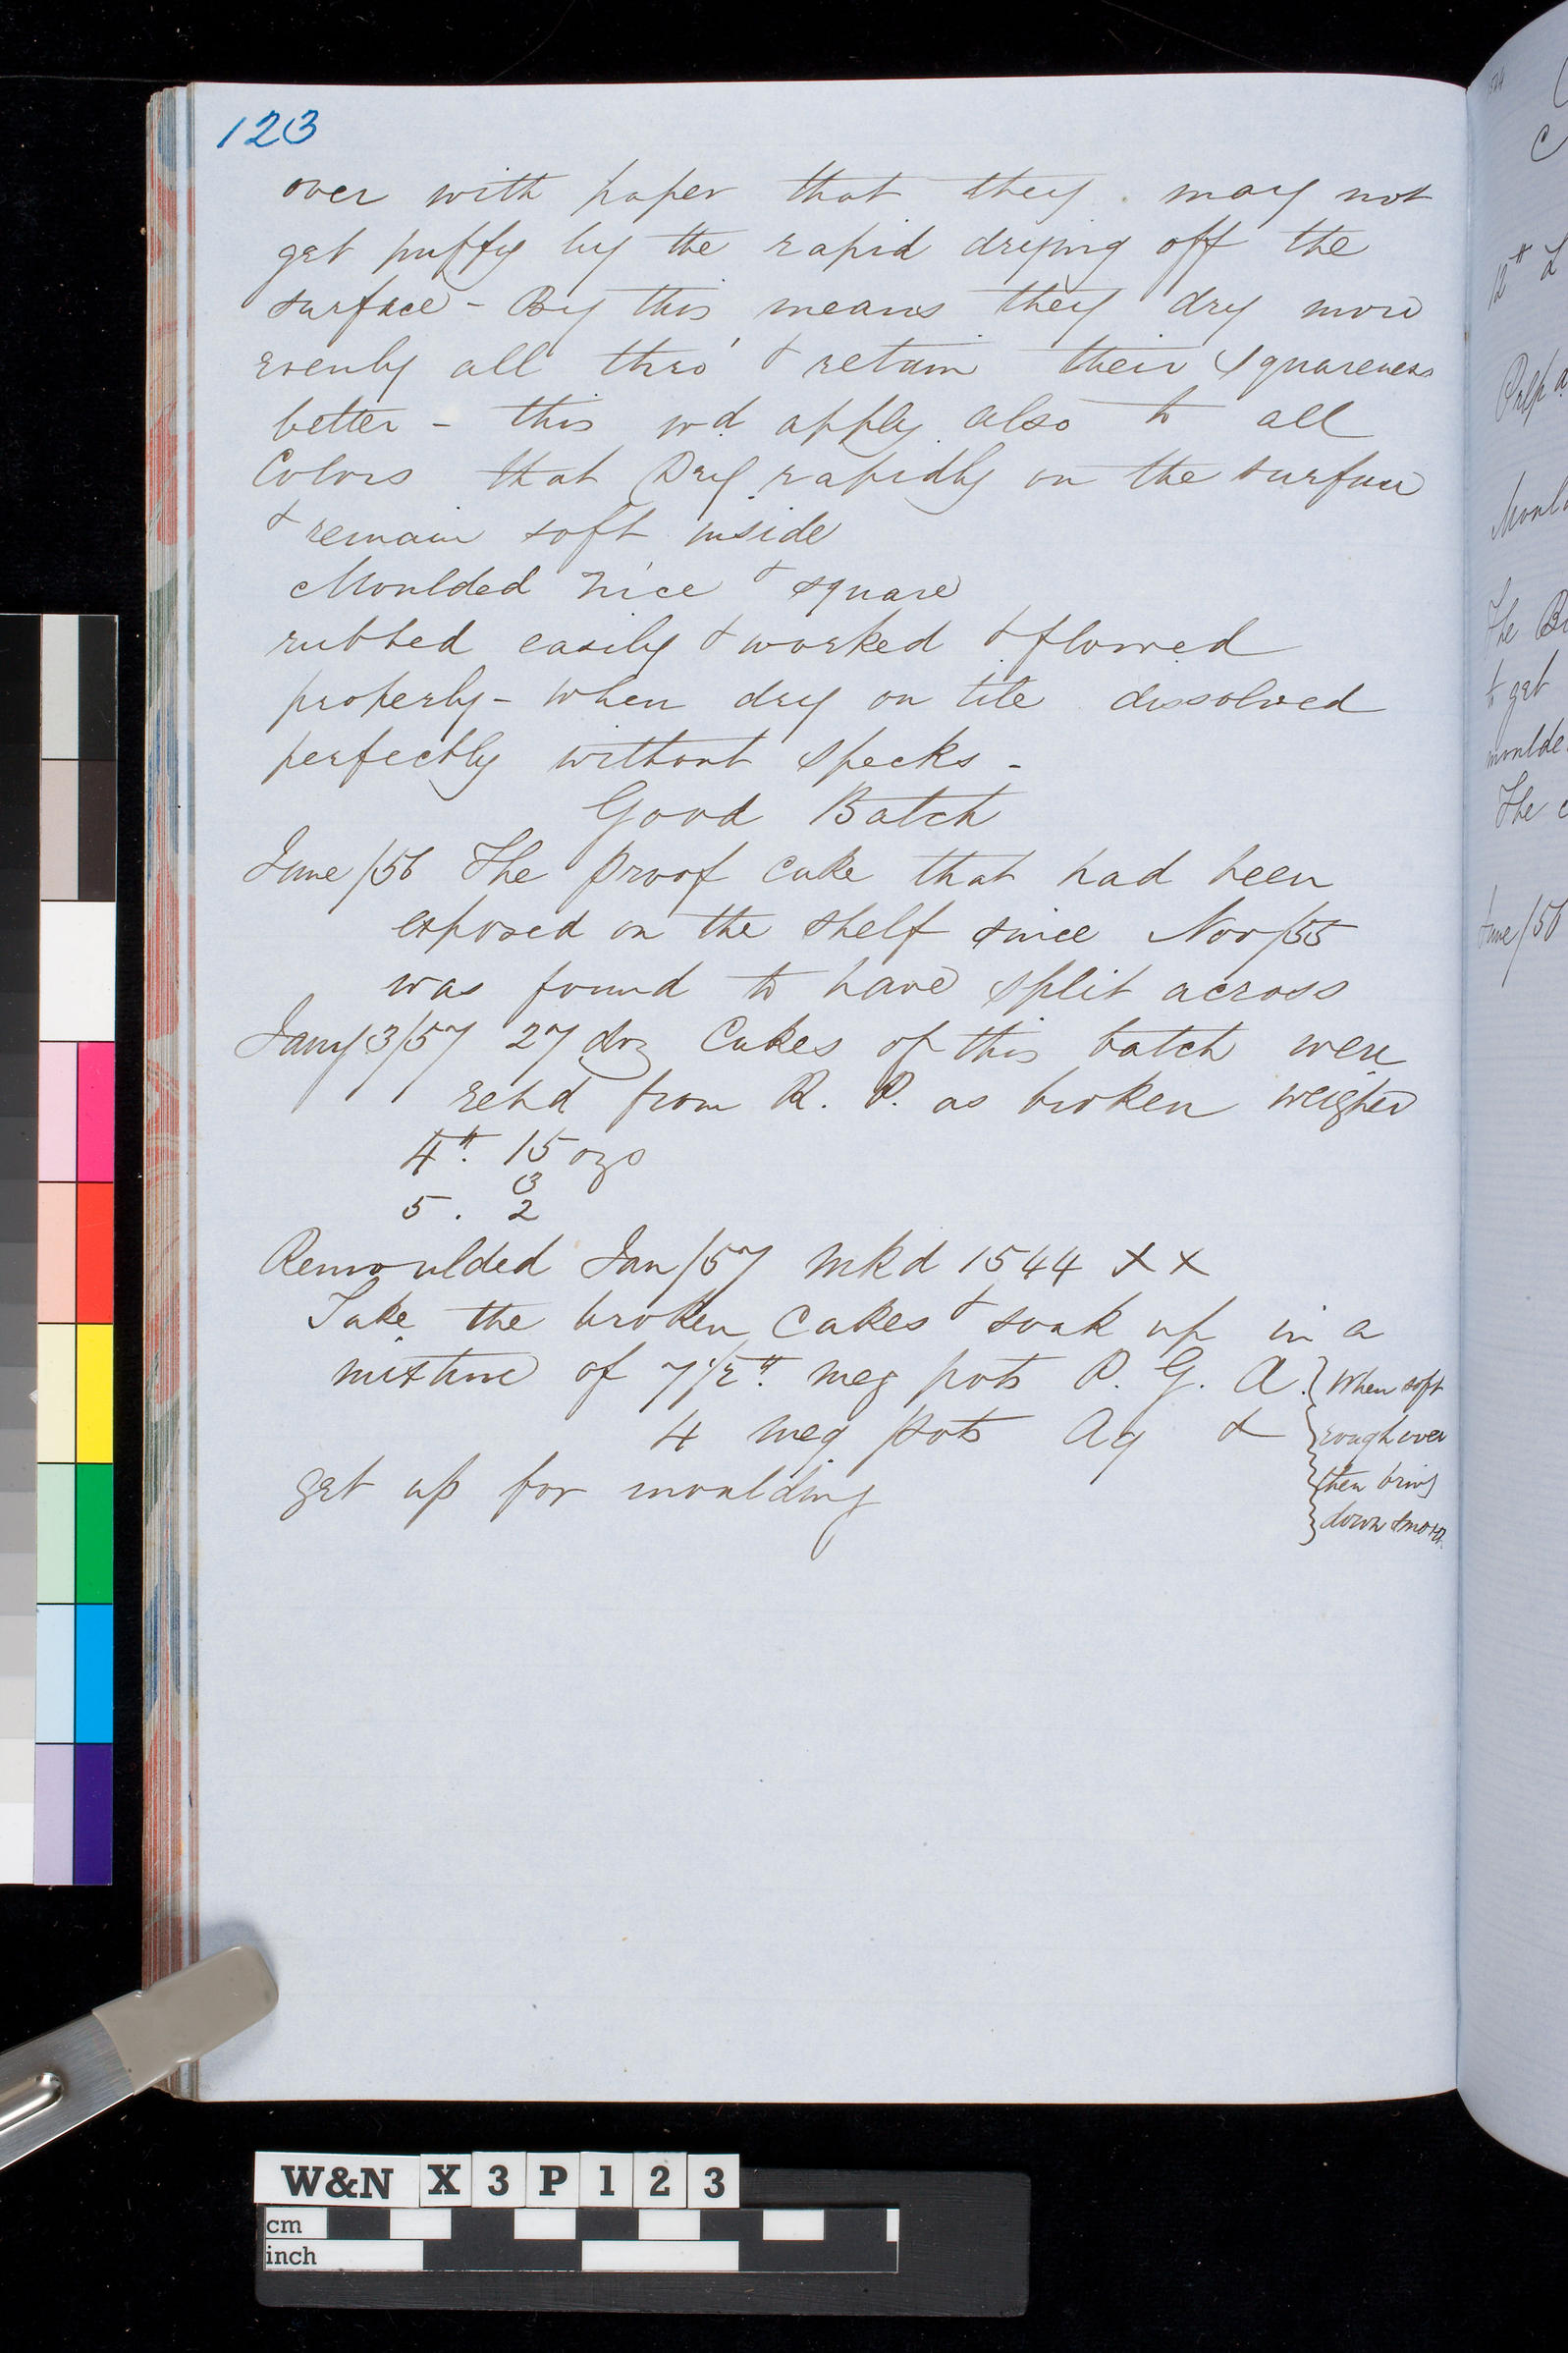 123
over with paper that they may not
get puffy by the rapid drying off the
surface - By this means they dry more
evenly all thro' & retain their squareness
better - this wd apply also to all
Colors that Dry rapidly on the surface
& remain soft inside
Moulded nice & square
rubbed easily & worked & flowed
properly - when dry on tile dissolved
perfectly without specks -
Good Batch
June /56 The proof cake that had been
exposed on the shelf since Nov/55
was found to have split across
Jany 3/57 27 doz Cakes of this batch were
retd from R. P. as broken weighed
4 ". 15 ozs
3
5 . 2
Remoulded Jan/57 mkd 1544 XX
Take the broken Cakes & soak up in a
mixture of 7 1/2 ". meg pots P. G. A.
4 meg pots Aq &
get up for moulding
When soft
rough over
then bring
down smooth
12" L
Prep a
Mould
The B
to get
moulde
The c
June/56
W&N X 3 P 1 2 3
cm
inch